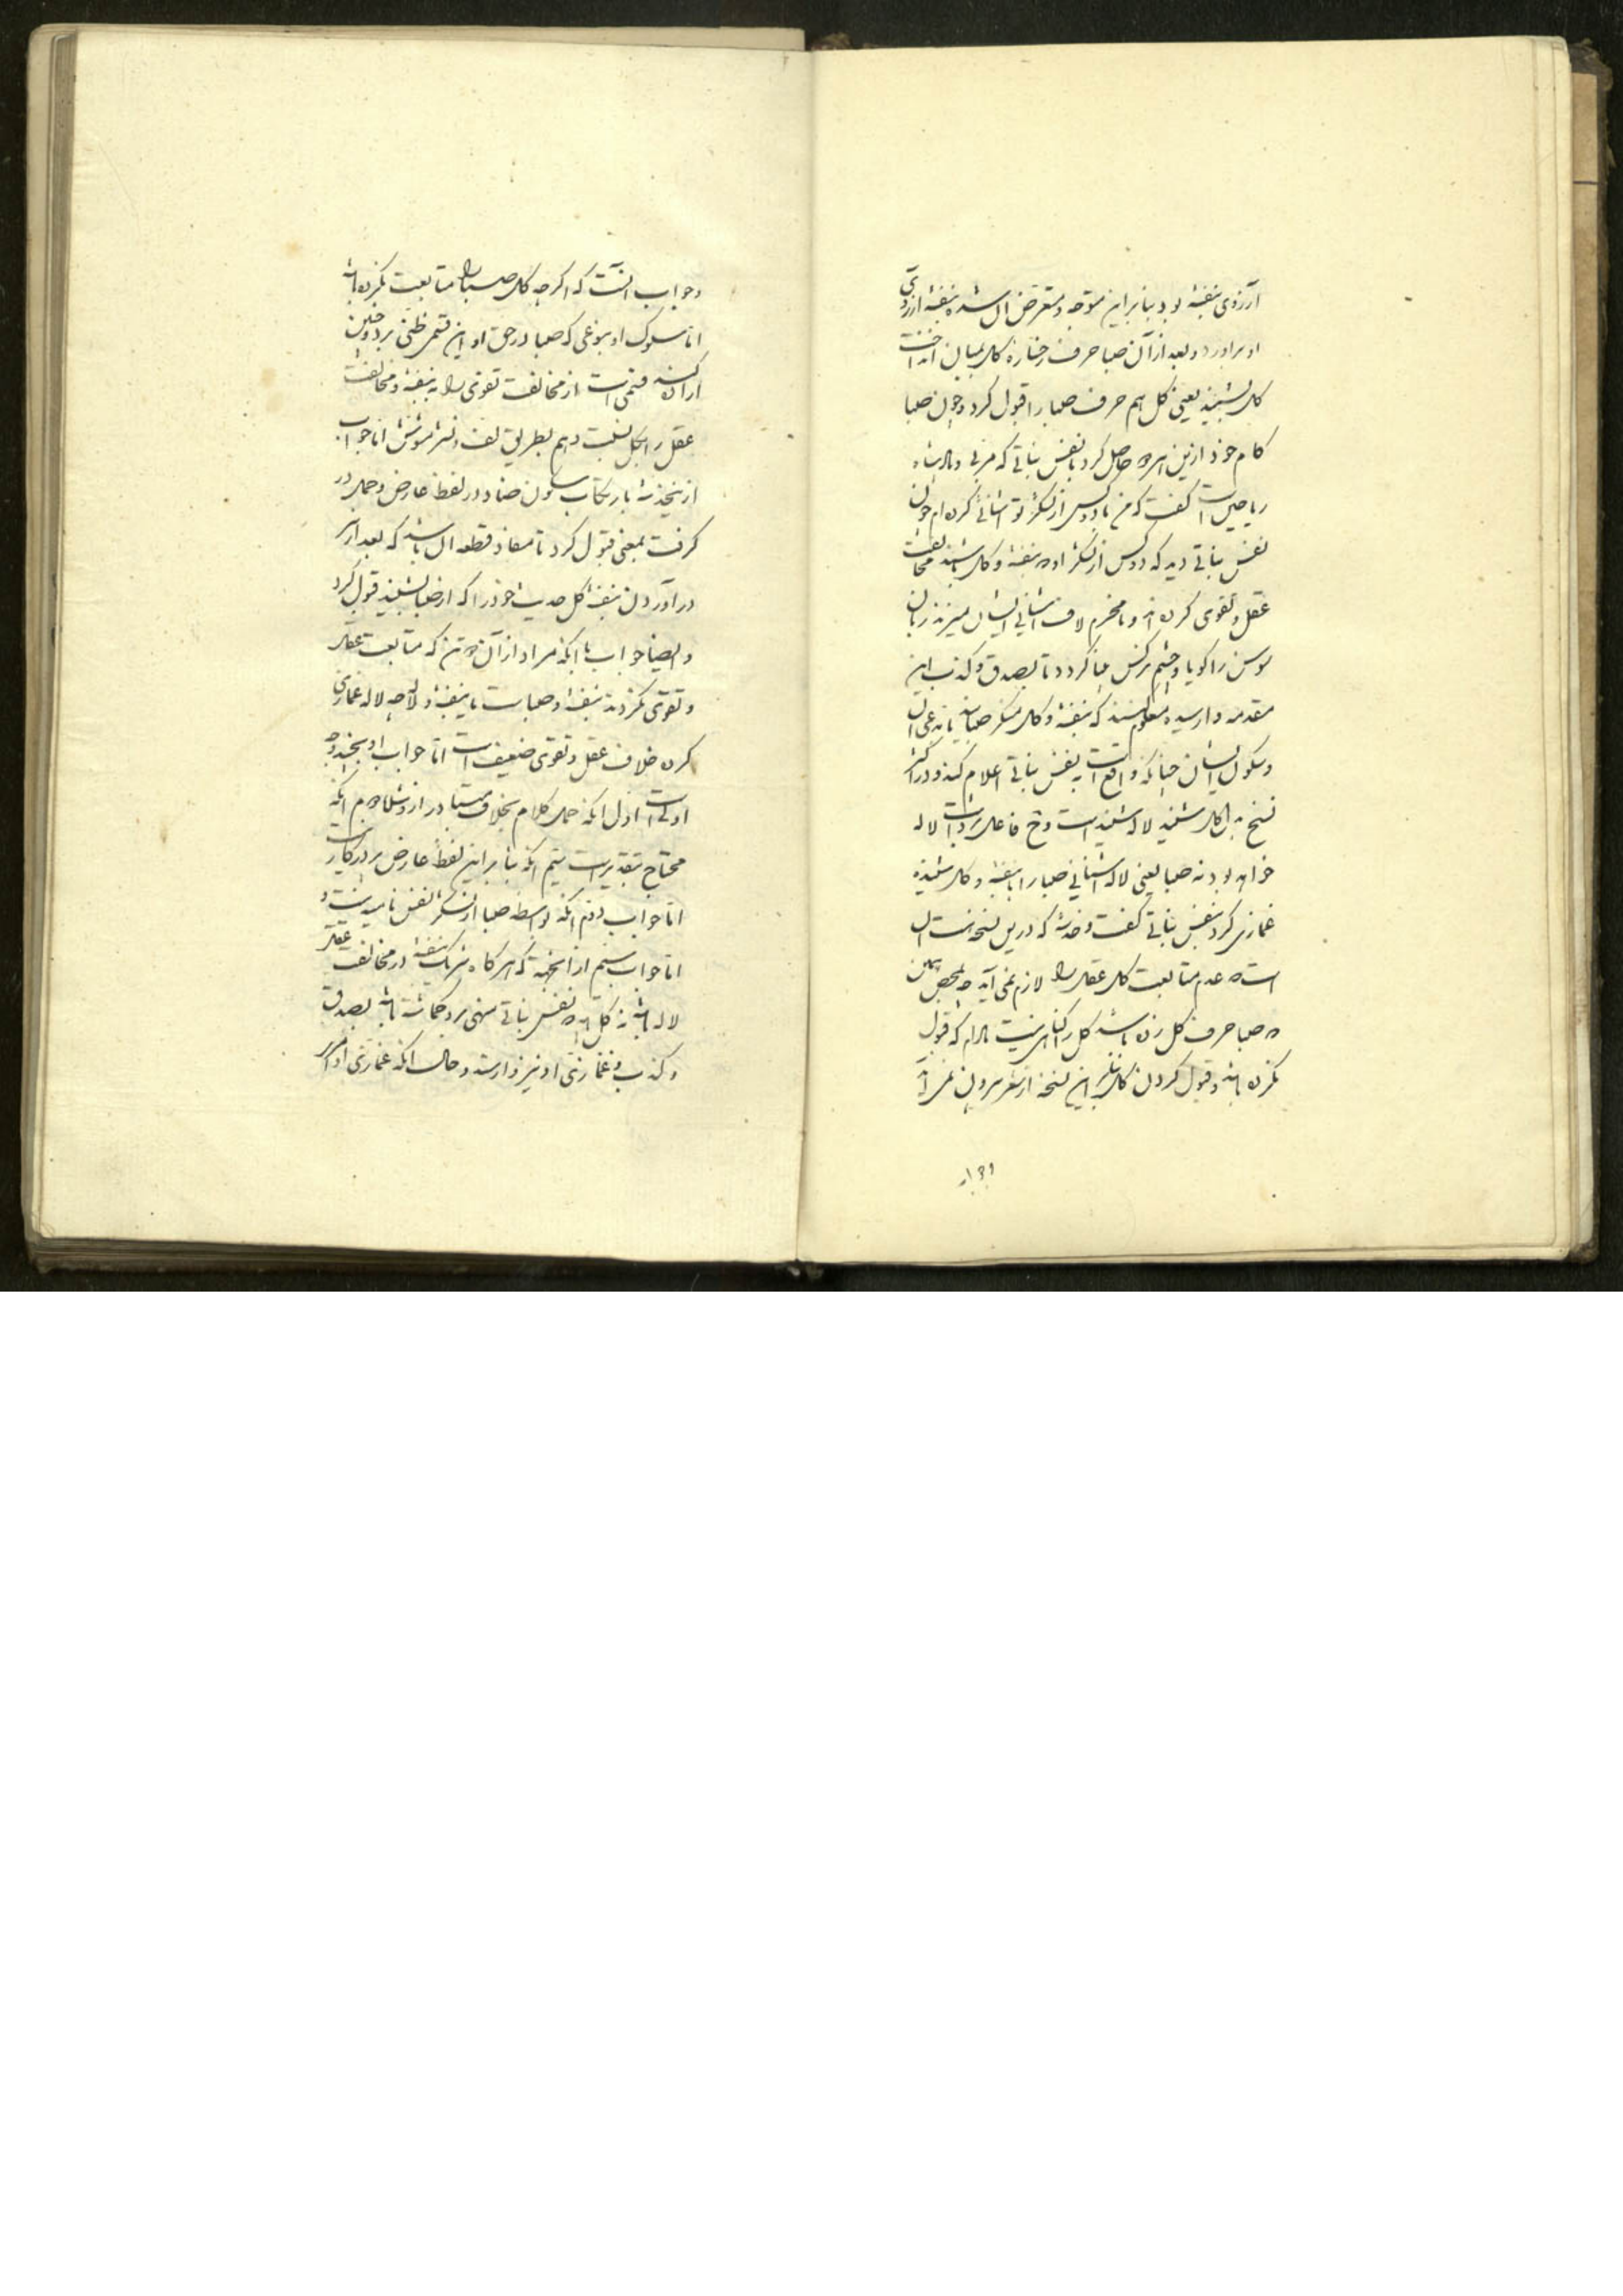 آرزوی بنفشه بود بنابراین متوجه و متعرض آن شده بنفشه آرزوی
او برآورد و بعد از آن صبا حرف رخساره گل بمیان انداخت
گل بشنید یعنی گل هم حرف صبا را قبول کرد و چون صبا
کام خود ازین هر دو حاصل کرد با نفس نباتی که مربی و پادشاه
ریاحین است گفت که من با دو کس از لشکر تو آشنائی کرده‌ام چون
نفس نباتی دید که دو کس از لشکر او که بنفشه و گل باشند مخالفت
عقل و تقوی کرده‌اند و نامحرم لاف آشنائی ایشان میزند زبان
سوسن را گویا و چشم نرگس بینا کرد تا بصدق و کذب این
مقدمه وارسیده معلوم کنند که بنفشه و گل منکر صبااند یا مدعی آن
ایشان چنانکه واقع است به نفس نباتی اعلام کنند و در اکثر
نسخ بدل گل شنید لاله شنید است و فاعل لاله
خواهد بود نه صبا یعنی لاله آشنائی صبا را با بنفشه و گل شنیده
غمازی کرد بنفس نباتی گفت و خدشه که درین نسخه است آن
است که عدم متابعت گل عقل را لازم نمی‌آید چه بمحض همین
که صبا حرف گل زده باشد گل را گناهی نیست مادام که قبول
نکرده باشد و قبول کردن گل بنابر این نسخه از شعر بیرون نمی‌آید
وجواب
و جواب آنست که اگرچه گل صبا را متابعت نکرده باشد
اما سلوک او بنوعی که صبا در حق او این قسم ظنی برد و چنین
اراده کند قسمی است از مخالفت تقوی را به بنفشه و مخالفت
عقل را بگل نسبت دهم بطریق لف و نشر مشوش اما جواب
ازین خدشه بارتکاب سکون ضاد در لفظ عارض و حمل در
گرفت بمعنی قبول کرد تا مفاد قطعه آن باشد که بعد از
درآوردن بنفشه گل حدیث خود را که از صبا بشنید قبول کرد
و ایضا جواب با آنکه مراد از آن دو تن که متابعت عقل
و تقوی نکردند بنفشه و صبا است یا بنفشه و لاله چه لاله غمازی
کرده خلاف عقل و تقوی ضعیف است اما جواب او بچند وجه
اولی است اول آنکه حمل کلام بخلاف متبادر از و شده دوم آنکه
محتاج بتقدیر است سیم آنکه بنابراین لفظ عارض بیکار است
اما جواب دوم آنکه بواسطه صبا از لشکر نفس نامیه نیست و
اما جواب سیم از آنجهة که هرگاه شریک بنفشه در مخالفت عقل
لاله باشد نه گل باید که نفس نباتی منهی برو گماشته باشد بصدق
و کذب و غمازئی او نیز وارسد و حال آنکه غمازئی او را